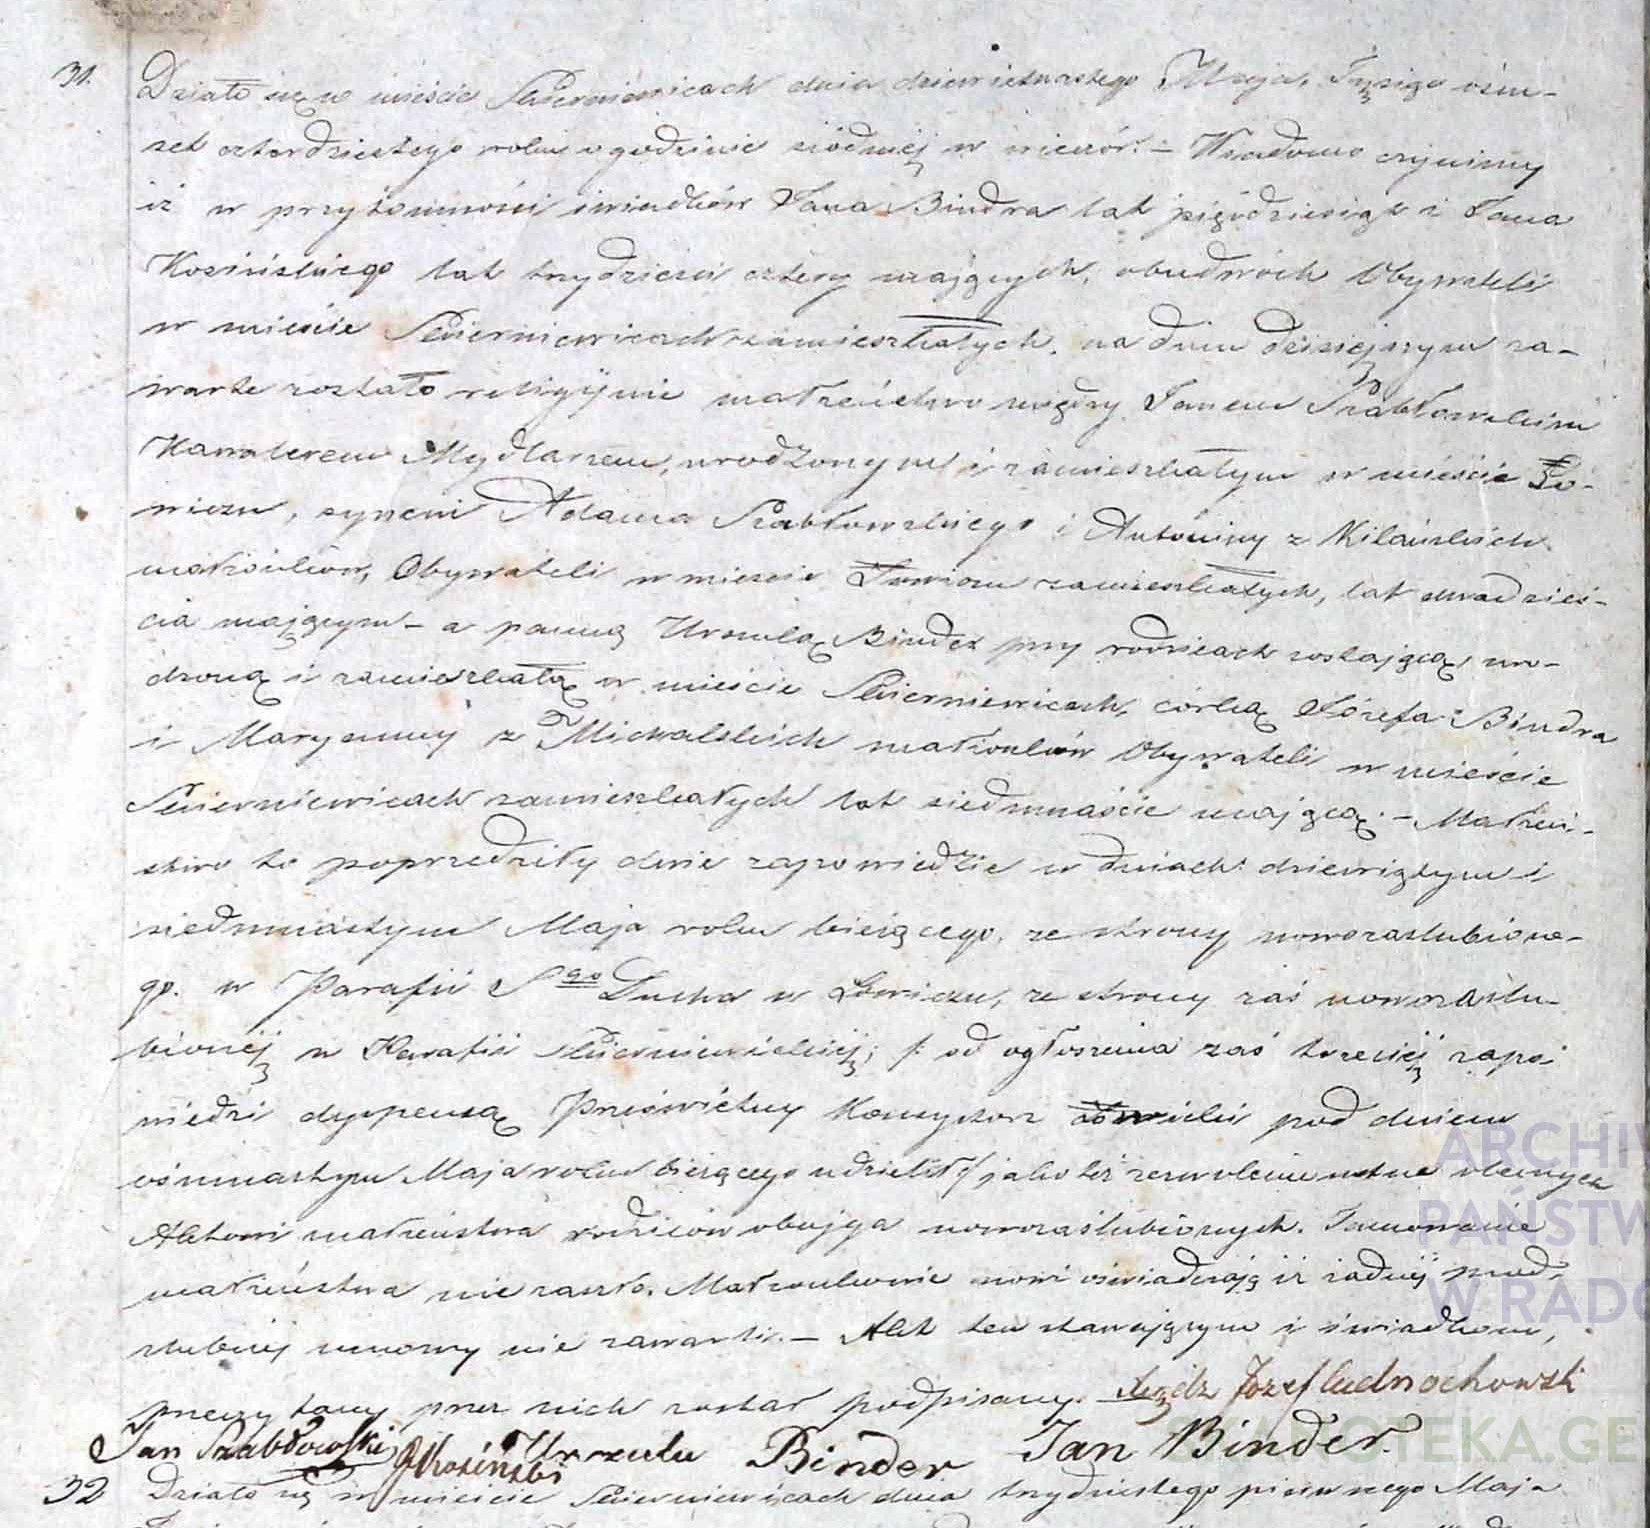 31. Działo się w mieście Skierniewicach dnia dziewiętnastego Maja, Tysiąc ośm-
set czterdziestego roku o godzinie siódmej w wieczór. – Wiadomo czynimy
iż w przytomności świadków Jana Bindra lat pięćdziesiąt i Jana
Kosińskiego lat trzydzieści cztery mających, obudwóch Obywateli
w mieście Skierniewicach zamieszkałych. na dniu dzisiejszym za-
warte zostało religijnie małżeństwo między Janem Szabłowskim
Kawalerem Mydlarzem, urodzonym i zamieszkałym w mieście Ło-
wiczu, synem Adama Szabłowskiego i Antoniny z Kilańskich
małżonków, Obywateli w mieście Łowiczu zamieszkałych, lat dwadzieś-
cia mającym – a panną Urszulą Binder przy rodzicach zostającą, uro-
dzoną i zamieszkałą w mieście Skierniewicach, córką Józefa Bindra
i Maryanny z Michalskich małżonków Obywateli w mieście
Skierniewicach zamieszkałych lat siedmnaście mającą. – Małżeń-
stwo to poprzedziły dwie zapowiedzie w dniach: dziewiątym i
siedmnastym Maja roku bieżącego, ze strony nowozaślubione-
go. w Parafii Sgo Ducha w Łowiczu, ze strony zaś nowozaślu-
bionej w Parafii Skierniewickiej; /: od ogłoszenia zaś trzeciej zapo-
wiedzi dyspensą Prześwietny Konsystorz pod dniem
ośmnastym Maja roku bieżącego udzielił :/ jako też zezwolenie ustne obecnych
Aktowi małżeństwa rodziców obojga nowozaślubionych. Tamowanie
małżeństwa nie zaszło. Małżonkowie nowi oświadczają iż żadnej przed-
ślubnej umowy nie zawarli. – Akt ten stawającym i świadkom,
przeczytany przez nich został podpisany. Xiądz Józef
Jan Szabłowski JKosiński Urszula Binder Jan Binder.
32 Działo się w mieście Skierniewicach dnia trzydziestego pierwszego Maja